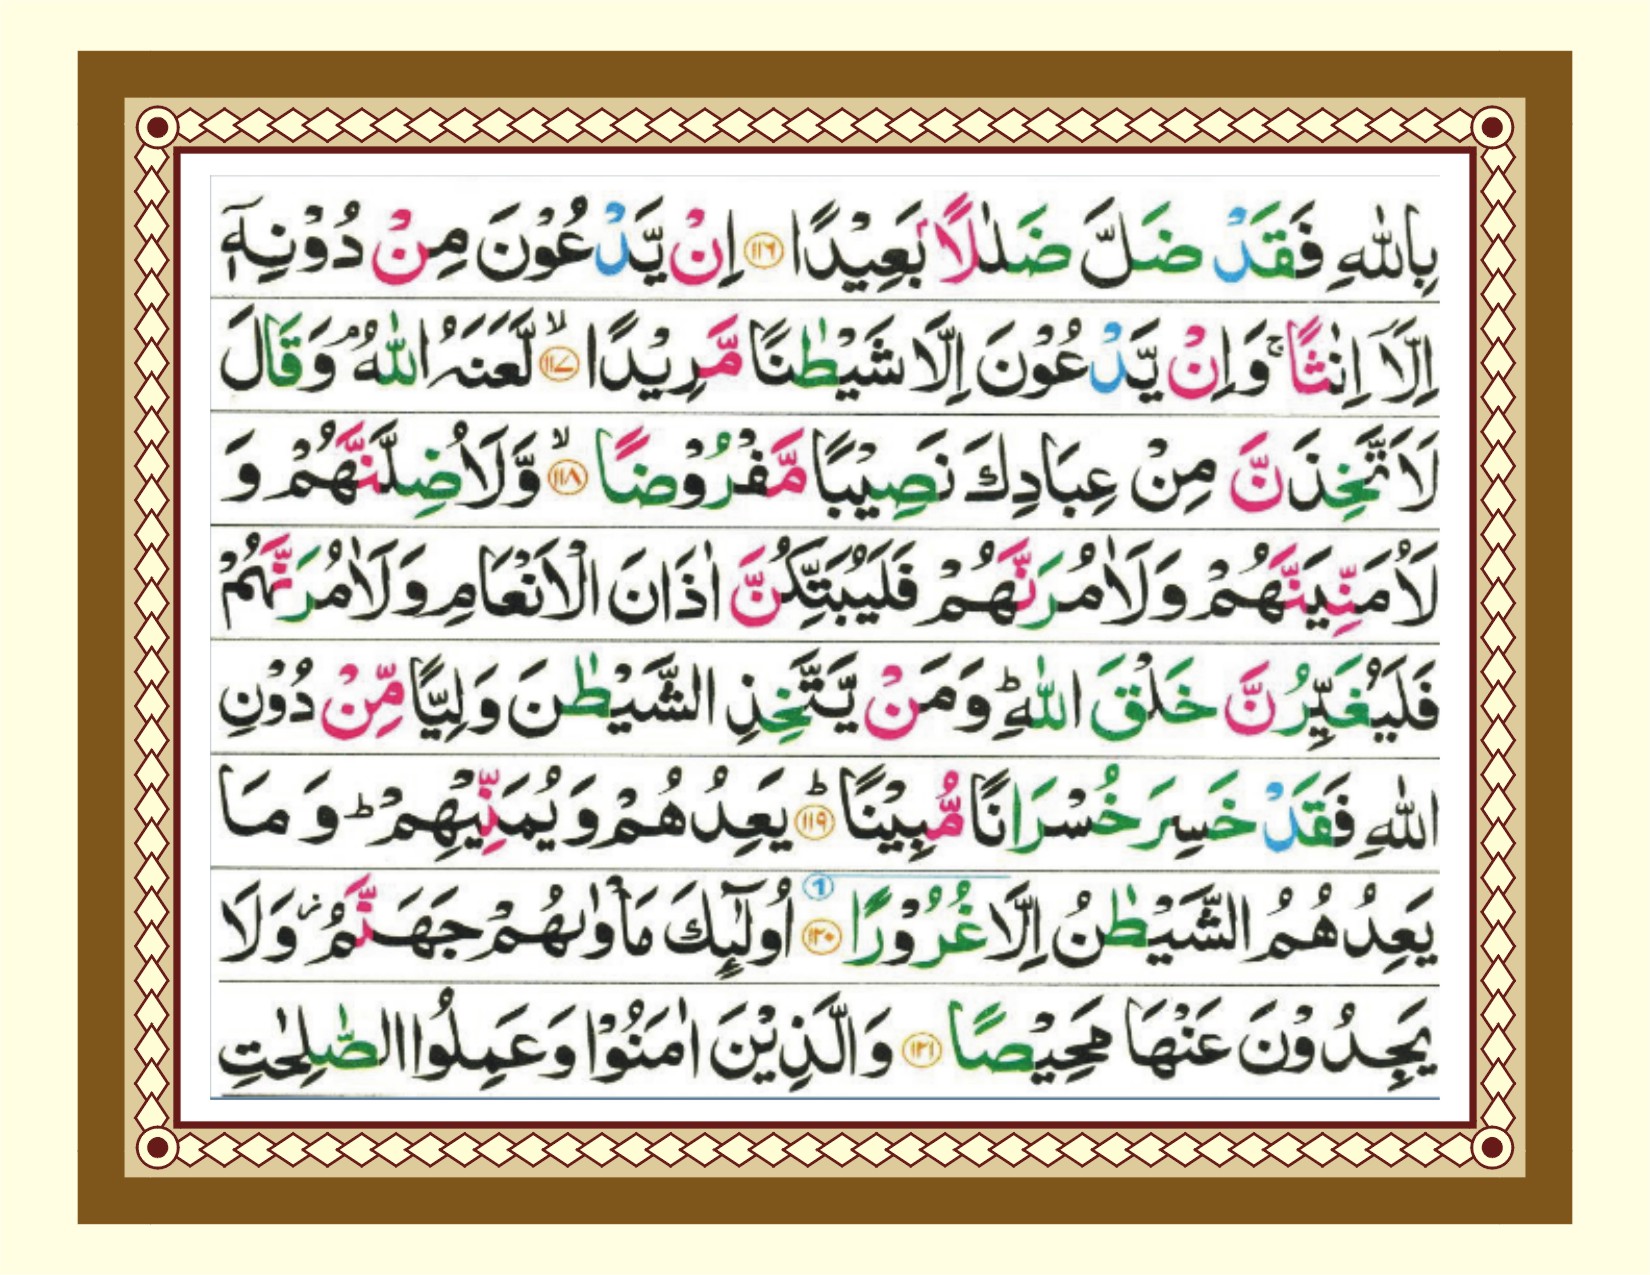 بِاللّٰهِ فَقَدْ ضَلَّ ضَلٰلًاۢ بَعِيْدًا ﴿۱۱۶﴾ اِنْ يَّدْعُوْنَ مِنْ دُوْنِهٖۤ
اِلَّاۤ اِنٰثًا ۚ وَاِنْ يَّدْعُوْنَ اِلَّا شَيْطٰنًا مَّرِيْدًا ۙ﴿۱۱۷﴾ لَّعَنَهُ اللّٰهُ ۘ وَقَالَ
لَاَتَّخِذَنَّ مِنْ عِبَادِكَ نَصِيْبًا مَّفْرُوْضًا ۙ﴿۱۱۸﴾ وَّلَاُضِلَّنَّهُمْ وَ
لَاُمَنِّيَنَّهُمْ وَلَاٰمُرَنَّهُمْ فَلَيُبَتِّكُنَّ اٰذَانَ الْاَنْعَامِ وَلَاٰمُرَنَّهُمْ
فَلَيُغَيِّرُنَّ خَلْقَ اللّٰهِ ؕ وَمَنْ يَّتَّخِذِ الشَّيْطٰنَ وَلِيًّا مِّنْ دُوْنِ
اللّٰهِ فَقَدْ خَسِرَ خُسْرَانًا مُّبِيْنًا ؕ﴿۱۱۹﴾ يَعِدُهُمْ وَيُمَنِّيْهِمْ ؕ وَ مَا
يَعِدُهُمُ الشَّيْطٰنُ اِلَّا غُرُوْرًا ﴿۱۲۰﴾ 1 اُولٰٓئِكَ مَاْوٰىهُمْ جَهَنَّمُ ۫ وَلَا
يَجِدُوْنَ عَنْهَا مَحِيْصًا ﴿۱۲۱﴾ وَالَّذِيْنَ اٰمَنُوْا وَعَمِلُوا الصّٰلِحٰتِ